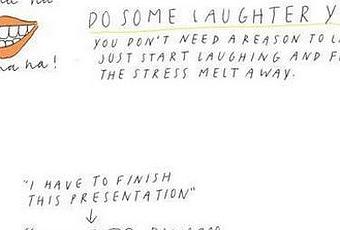 DO SOME LAUGHTER
YOU DON'T NEED A REASON TO
JUST START LAUGHING AND
THE STRESS MELT AWAY.
ha!
"I HAVE TO FINISH
THIS PRESENTATION"